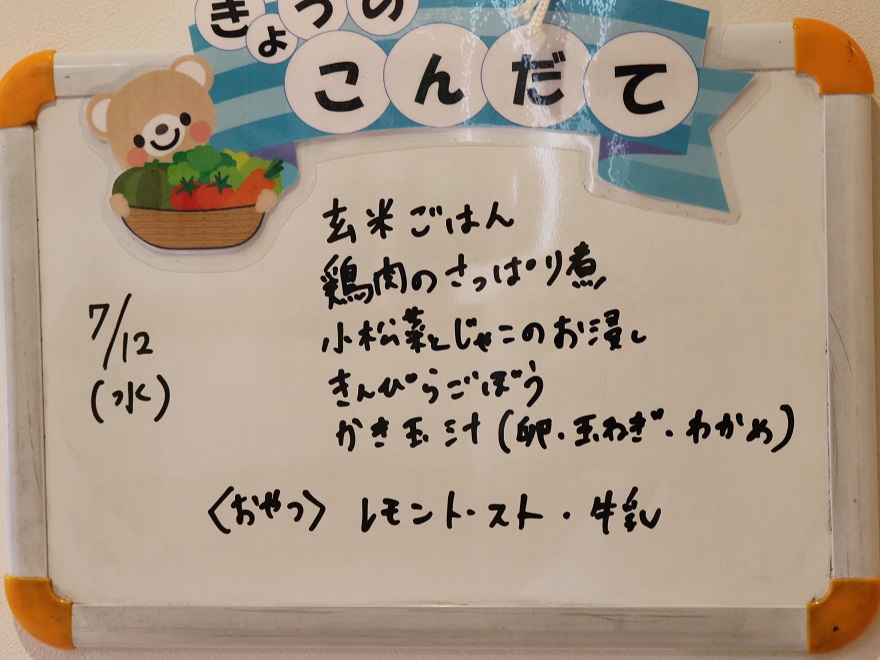 きょうの
こんだて
玄米ごはん
鶏肉のさっぱり煮
7/12
(水)
小松菜とじゃこのお浸し
きんぴらごぼう
かき玉汁(卵・玉ねぎ・わかめ)
〈おやつ〉 レモントースト・牛乳